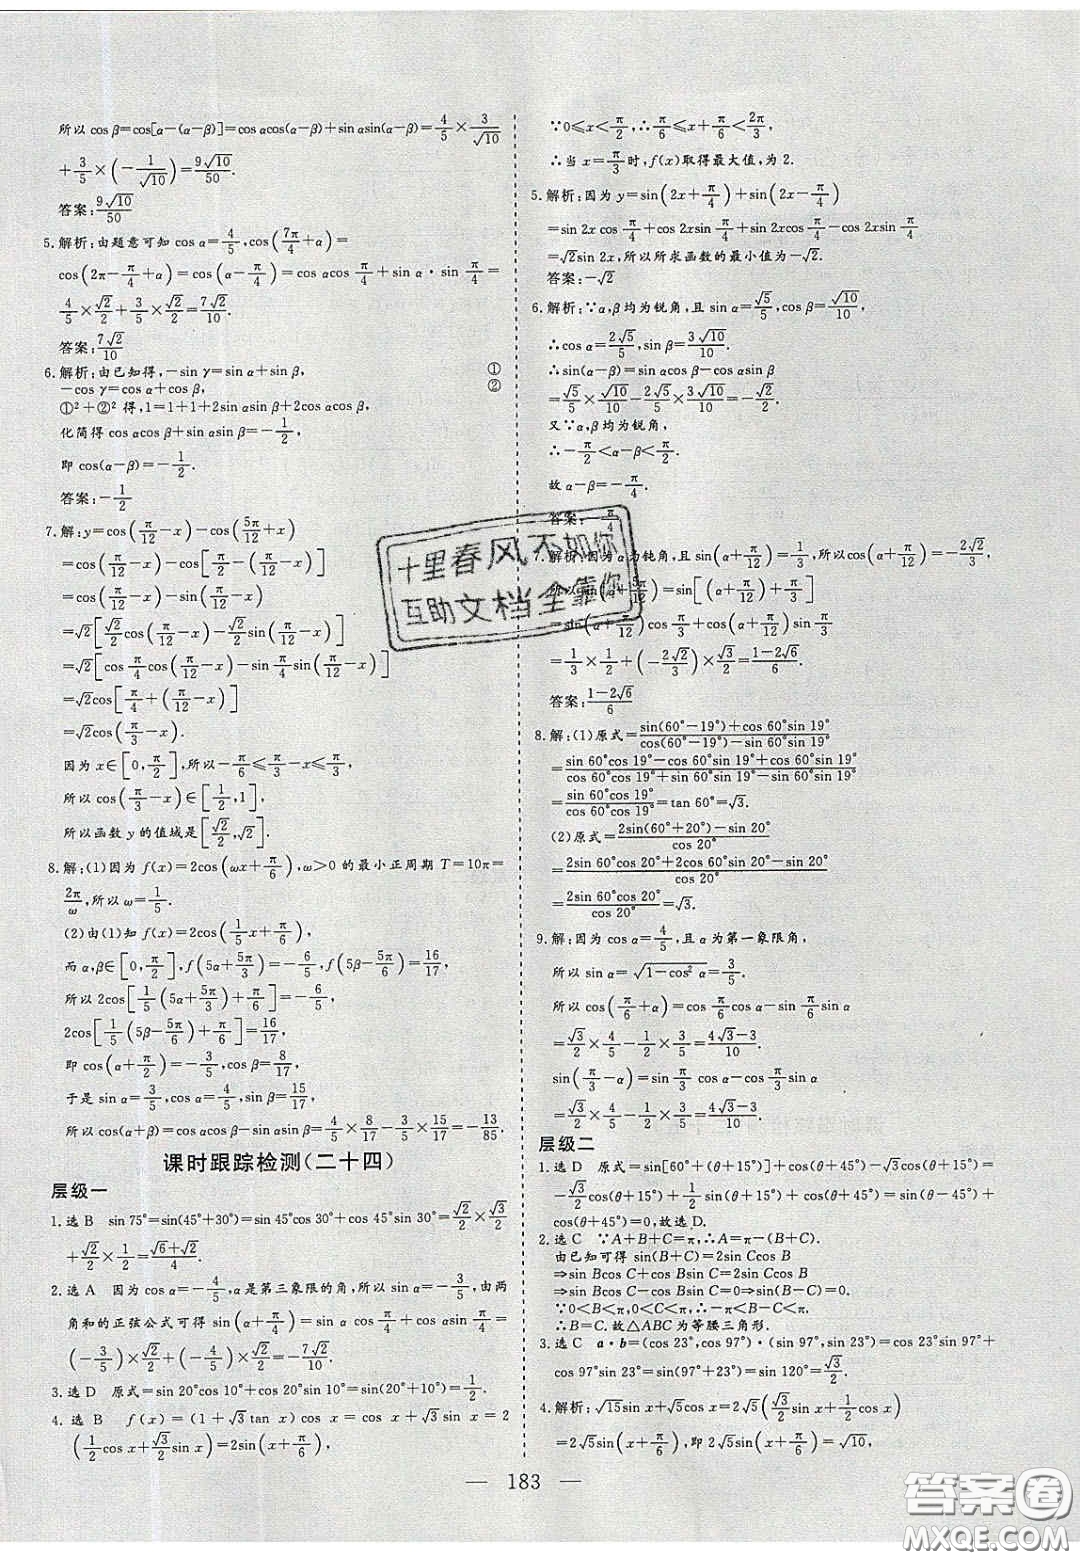 所以 cos β=cos[α-(α-β)]=cos αcos(α-β)+sin αsin(α-β)=4/5×3/√10
+3/5×(-1/√10)=9√10/50.
答案:9√10/50
5.解析:由题意可知 cos α=4/5,cos(7π/4+α)=
cos(2π-π/4+α)=cos(α-π/4)=cos αcos π/4+sin α·sin π/4=
4/5×√2/2+3/5×√2/2=7√2/10.
答案:7√2/10
6.解析:由已知得,-sin γ=sin α+sin β, ①
-cos γ=cos α+cos β, ②
①²+②² 得,1=1+1+2sin αsin β+2cos αcos β,
化简得 cos αcos β+sin αsin β=-1/2,
即 cos(α-β)=-1/2.
答案:-1/2
7.解:y=cos(π/12-x)-cos(5π/12+x)
=cos(π/12-x)-cos[π/2-(π/12-x)]
=cos(π/12-x)-sin(π/12-x)
=√2[√2/2cos(π/12-x)-√2/2sin(π/12-x)]
=√2[cos π/4cos(π/12-x)-sin π/4sin(π/12-x)]
=√2cos[π/4+(π/12-x)]
=√2cos(π/3-x).
因为 x∈[0,π/2],所以-π/6≤π/3-x≤π/3,
所以 cos(π/3-x)∈[1/2,1],
所以函数 y 的值域是[√2/2,√2].
8.解:(1)因为 f(x)=2cos(ωx+π/6),ω>0 的最小正周期 T=10π=
2π/ω,所以 ω=1/5.
(2)由(1)知 f(x)=2cos(1/5x+π/6),
而 α,β∈[0,π/2],f(5α+5π/3)=-6/5,f(5β-5π/6)=16/17,
所以 2cos[1/5(5α+5π/3)+π/6]=-6/5,
2cos[1/5(5β-5π/6)+π/6]=16/17,
即 cos(α+π/2)=-3/5,cos β=8/17,
于是 sin α=3/5,cos α=4/5,sin β=15/17,
所以 cos(α+β)=cos αcos β-sin αsin β=4/5×8/17-3/5×15/17=-13/85.
课时跟踪检测(二十四)
层级一
1.选 B sin 75°=sin(45°+30°)=sin 45°cos 30°+cos 45°sin 30°=√2/2×√3/2
+√2/2×1/2=(√6+√2)/4.
2.选 A 因为 cos α=-4/5,α是第三象限的角,所以 sin α=-3/5,由两
角和的正弦公式可得 sin(α+π/4)=sin αcos π/4+cos αsin π/4=(-
3/5)×√2/2+(-4/5)×√2/2=-7√2/10.
3.选 D 原式=sin 20°cos 10°+cos 20°sin 10°=sin(20°+10°)=1/2.
4.选 B f(x)=(1+√3tan x)cos x=cos x+√3sin x=2
(1/2cos x+√3/2sin x)=2sin(x+π/6),
∵0≤x<π/2,∴π/6≤x+π/6<2π/3,
∴当 x=π/3时,f(x)取得最大值,为 2.
5.解析:因为 y=sin(2x+π/4)+sin(2x-π/4)
=sin 2xcos π/4+cos 2xsin π/4+sin 2xcos π/4-cos 2xsin π/4
=√2sin 2x,所以所求函数的最小值为-√2.
答案:-√2
6.解析:∵α,β均为锐角,且 sin α=√5/5,cos β=√10/10,
∴cos α=2√5/5,sin β=3√10/10.
∴sin(α-β)=sin αcos β-cos αsin β
=√5/5×√10/10-2√5/5×3√10/10=-√2/2.
又∵α,β均为锐角,
∴-π/2<α-β<π/2.
故 α-β=-π/4.
答案:-π/4
7.解析:因为 α 为钝角,且 sin(α+π/12)=1/3,所以cos(α+π/12)=-2√2/3,
所以 sin(α+5π/12)=sin[(α+π/12)+π/3]
=sin(α+π/12)cos π/3+cos(α+π/12)sin π/3
=1/3×1/2+(-2√2/3)×√3/2=(1-2√6)/6.
答案:(1-2√6)/6
8.解:(1)原式=(sin(60°-19°)+cos 60°sin 19°)/(cos(60°-19°)-sin 60°sin 19°)
=(sin 60°cos 19°-cos 60°sin 19°+cos 60°sin 19°)/(cos 60°cos 19°+sin 60°sin 19°-sin 60°sin 19°)
=sin 60°cos 19°/cos 60°cos 19°=tan 60°=√3.
(2)原式=(2sin(60°+20°)-sin 20°)/cos 20°
=(2sin 60°cos 20°+2cos 60°sin 20°-sin 20°)/cos 20°
=2sin 60°cos 20°/cos 20°=√3.
9.解:因为 cos α=4/5,且 α 为第一象限角,
所以 sin α=√(1-cos² α)=3/5.
所以 cos(π/6+α)=cos π/6cos α-sin π/6sin α
=√3/2×4/5-1/2×3/5=(4√3-3)/10.
sin(π/3-α)=sin π/3cos α-cos π/3sin α
=√3/2×4/5-1/2×3/5=(4√3-3)/10.
层级二
1.选 D 原式=sin[60°+(θ+15°)]+cos(θ+45°)-√3cos(θ+15°)=-√3/2
cos(θ+15°)+1/2sin(θ+15°)+cos(θ+45°)=-cos(θ+45°)+
cos(θ+45°)=0,故选 D.
2.选 C ∵A+B+C=π,∴A=π-(B+C).
由已知可得 sin(B+C)=2sin Ccos B
⇒sin Bcos C+cos Bsin C=2sin Ccos B
⇒sin Bcos C-cos Bsin C=0⇒sin(B-C)=0.
∵0<B<π,0<C<π,∴-π<B-C<π.
∴B=C.故△ABC 为等腰三角形.
3.选 C a·b=(cos 23°,cos 97°)·(sin 97°,sin 23°)=cos 23°sin 97°+
cos 97°sin 23°=sin(97°+23°)=sin 120°=√3/2.
4.解析:√15sin x+√5cos x=2√5(√3/2sin x+1/2cos x)
=2√5sin(x+π/6),即 2√5sin(x+π/6)=√10,
— 183 —
十里春风不如你
互助文档全靠你
答案圈
MXQE.COM